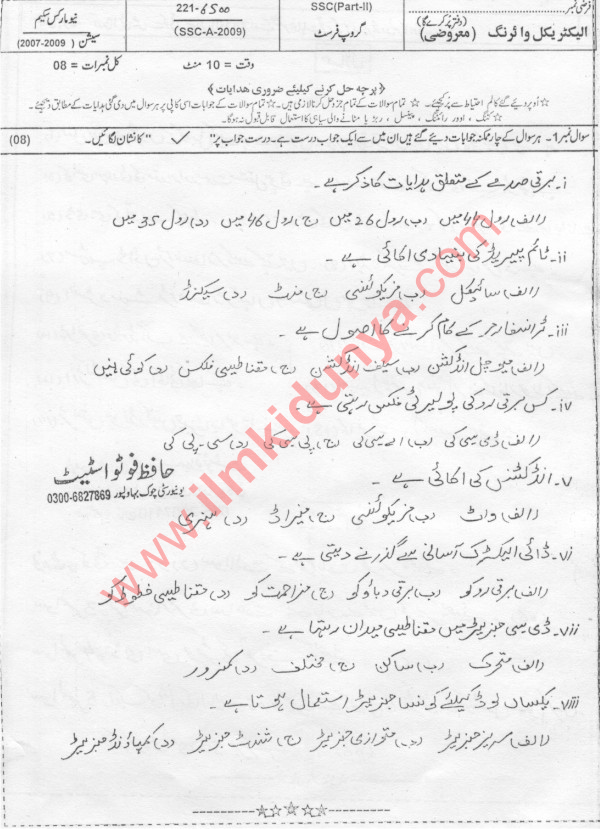 فرضی نمبر
SSC(Part-II)
221-6500
نیو مارکس سکیم
الیکٹریکل وائرنگ (معروضی) (دفتر پُر کرے گا)
گروپ فرسٹ
(SSC-A-2009)
سیشن (2007-2009)
وقت = 10 منٹ
کل نمبرات = 08
﴿پرچہ حل کرنے کیلئے ضروری ہدایات﴾
☆ اوپر دیئے گئے کالم احتیاط سے پُر کیجئے۔ ☆ تمام سوالات کے تمام جز حل کرنا لازمی ہیں۔ ☆ تمام سوالات کے جوابات اسی کاپی پر ہر سوال میں دی گئی ہدایات کے مطابق دیجئے۔
☆ کٹنگ، اوور رائٹنگ، پینسل، ربڑ یا مٹانے والی سیاہی کا استعمال قابل قبول نہ ہوگا۔
سوال نمبر 1۔ ہر سوال کے چار ممکنہ جوابات دیئے گئے ہیں ان میں سے ایک جواب درست ہے۔ درست جواب پر " ✓ " کا نشان لگائیں۔ (08)
i۔ برقی صدمے کے متعلق ہدایات کا ذکر ہے۔
(الف) رول 44 میں (ب) رول 26 میں (ج) رول 46 میں (د) رول 35 میں
ii۔ ٹائم پیریڈ کی بنیادی اکائی ہے۔
(الف) سائیکل (ب) فریکوئنسی (ج) منٹ (د) سیکنڈ
iii۔ ٹرانسفارمر کے کام کرنے کا اصول ہے۔
(الف) میوچل انڈکشن (ب) سیلف انڈکشن (ج) مقناطیسی فلکس (د) کوئی نہیں
iv۔ کس برقی رو کی پولیرٹی فکس رہتی ہے۔
(الف) ڈی سی کی (ب) اے سی کی (ج) پی سی کی (د) سی۔پی کی
v۔ انڈکٹنس کی اکائی ہے۔
حافظ فوٹو اسٹیٹ
یونیورسٹی چوک بہاولپور 0300-6827869
(الف) واٹ (ب) فریکوئنسی (ج) فیراڈ (د) ہنری
vi۔ ڈائی الیکٹرک آسانی سے گذرنے دیتی ہے۔
(الف) برقی رو کو (ب) برقی دباؤ کو (ج) مزاحمت کو (د) مقناطیسی خطوط کو
vii۔ ڈی سی جنریٹر میں مقناطیسی میدان رہتا ہے۔
(الف) متحرک (ب) ساکن (ج) مختلف (د) کمزور
viii۔ یکساں لوڈ کیلئے کونسا جنریٹر استعمال ہوتا ہے۔
(الف) سریز جنریٹر (ب) متوازی جنریٹر (ج) شنٹ جنریٹر (د) کمپاؤنڈ جنریٹر
www.ilmkidunya.com